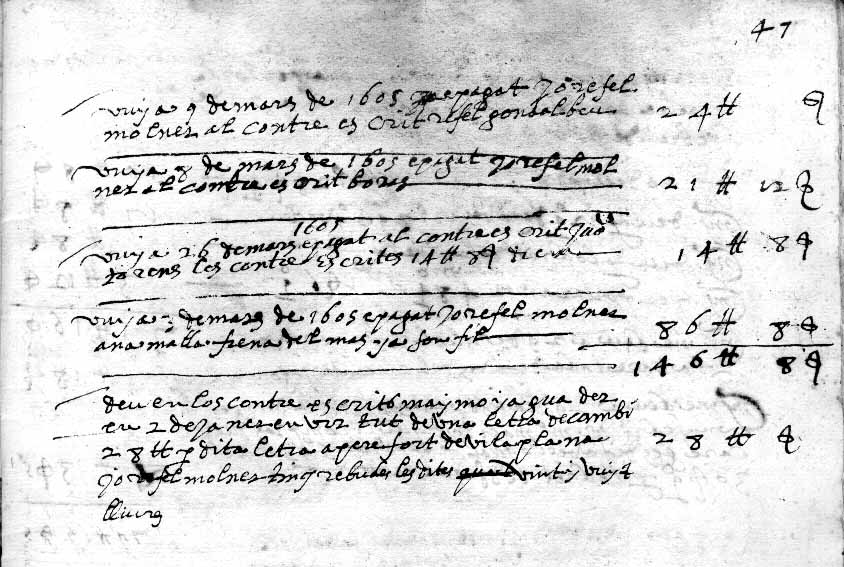 47
vuy a 9 de mars de 1605 e pagat Jo refel
molner al contre es crit refel gondalbeu 24 ℔ ꝭ
vuy a 8 de mars de 1605 e pagat Jo refel mol
ner al contre es crit boras 21 ℔ 12 ꝭ
1605
vuy a 26 de mars e pagat al contre es crit
lorens les contre escrites 14 ℔ 8 ꝭ 14 ℔ 8 ꝭ
vuy a de mars de 1605 e pagat Jo refel molner
a na malla frena del mas ya son fil 86 ℔ 8 ꝭ
146 ℔ 8 ꝭ
deu en los contre escrits maymo
en 2 de janer en vir tut de una letra de cambi
28 ℔ p dita letra a pere fort de vila plana 28 ℔ ꝭ
jo refel molner tinq rebudes les dites vint y vuyt
lliures